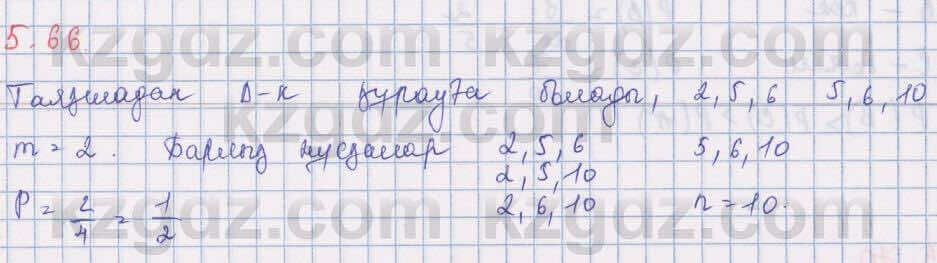 5.66.
kzgdz.com kzgdz.com
Таяқшадан Δ-к құрауға болады, 2,5,6 5,6,10
kzgdz.com kzgdz.com
m = 2. Барлық нұсқалар 2,5,6 5,6,10
2,5,10
P = 2/4 = 1/2 2,6,10 n = 10.
kzgdz.com kzgdz.com